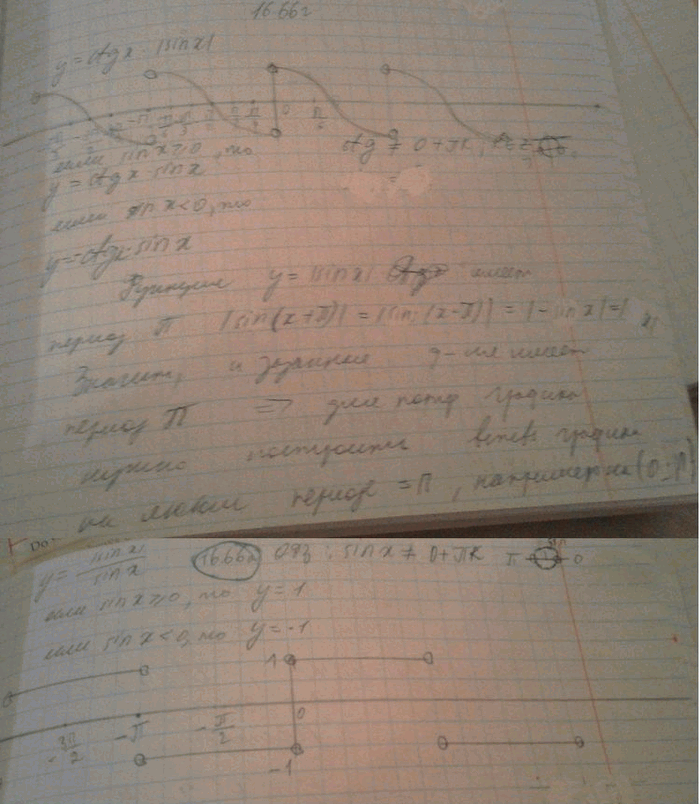 16.66г
y = ctgx · |sinx|
0
если sinx≥0, то
ctg ≠ 0+πk
y = ctgx · sinx
если sinx<0, то
y=-ctgx·sinx
Функция y = |sinx| имеет
период π |sin(x+π)| = |sin(x-π)| = |-sinx| = |
Значит, и заданная ф-ия имеет
период π => для постр графика
нужно построить ветвь графика
на любом периоде =π, например на (0;π)
y = |sinx|/sinx
16.66 ОДЗ: sinx ≠ 0+πk π 0
если sinx≥0, то y=1
если sinx<0, то y=-1
1
-3π/2 -π -π/2 0
-1